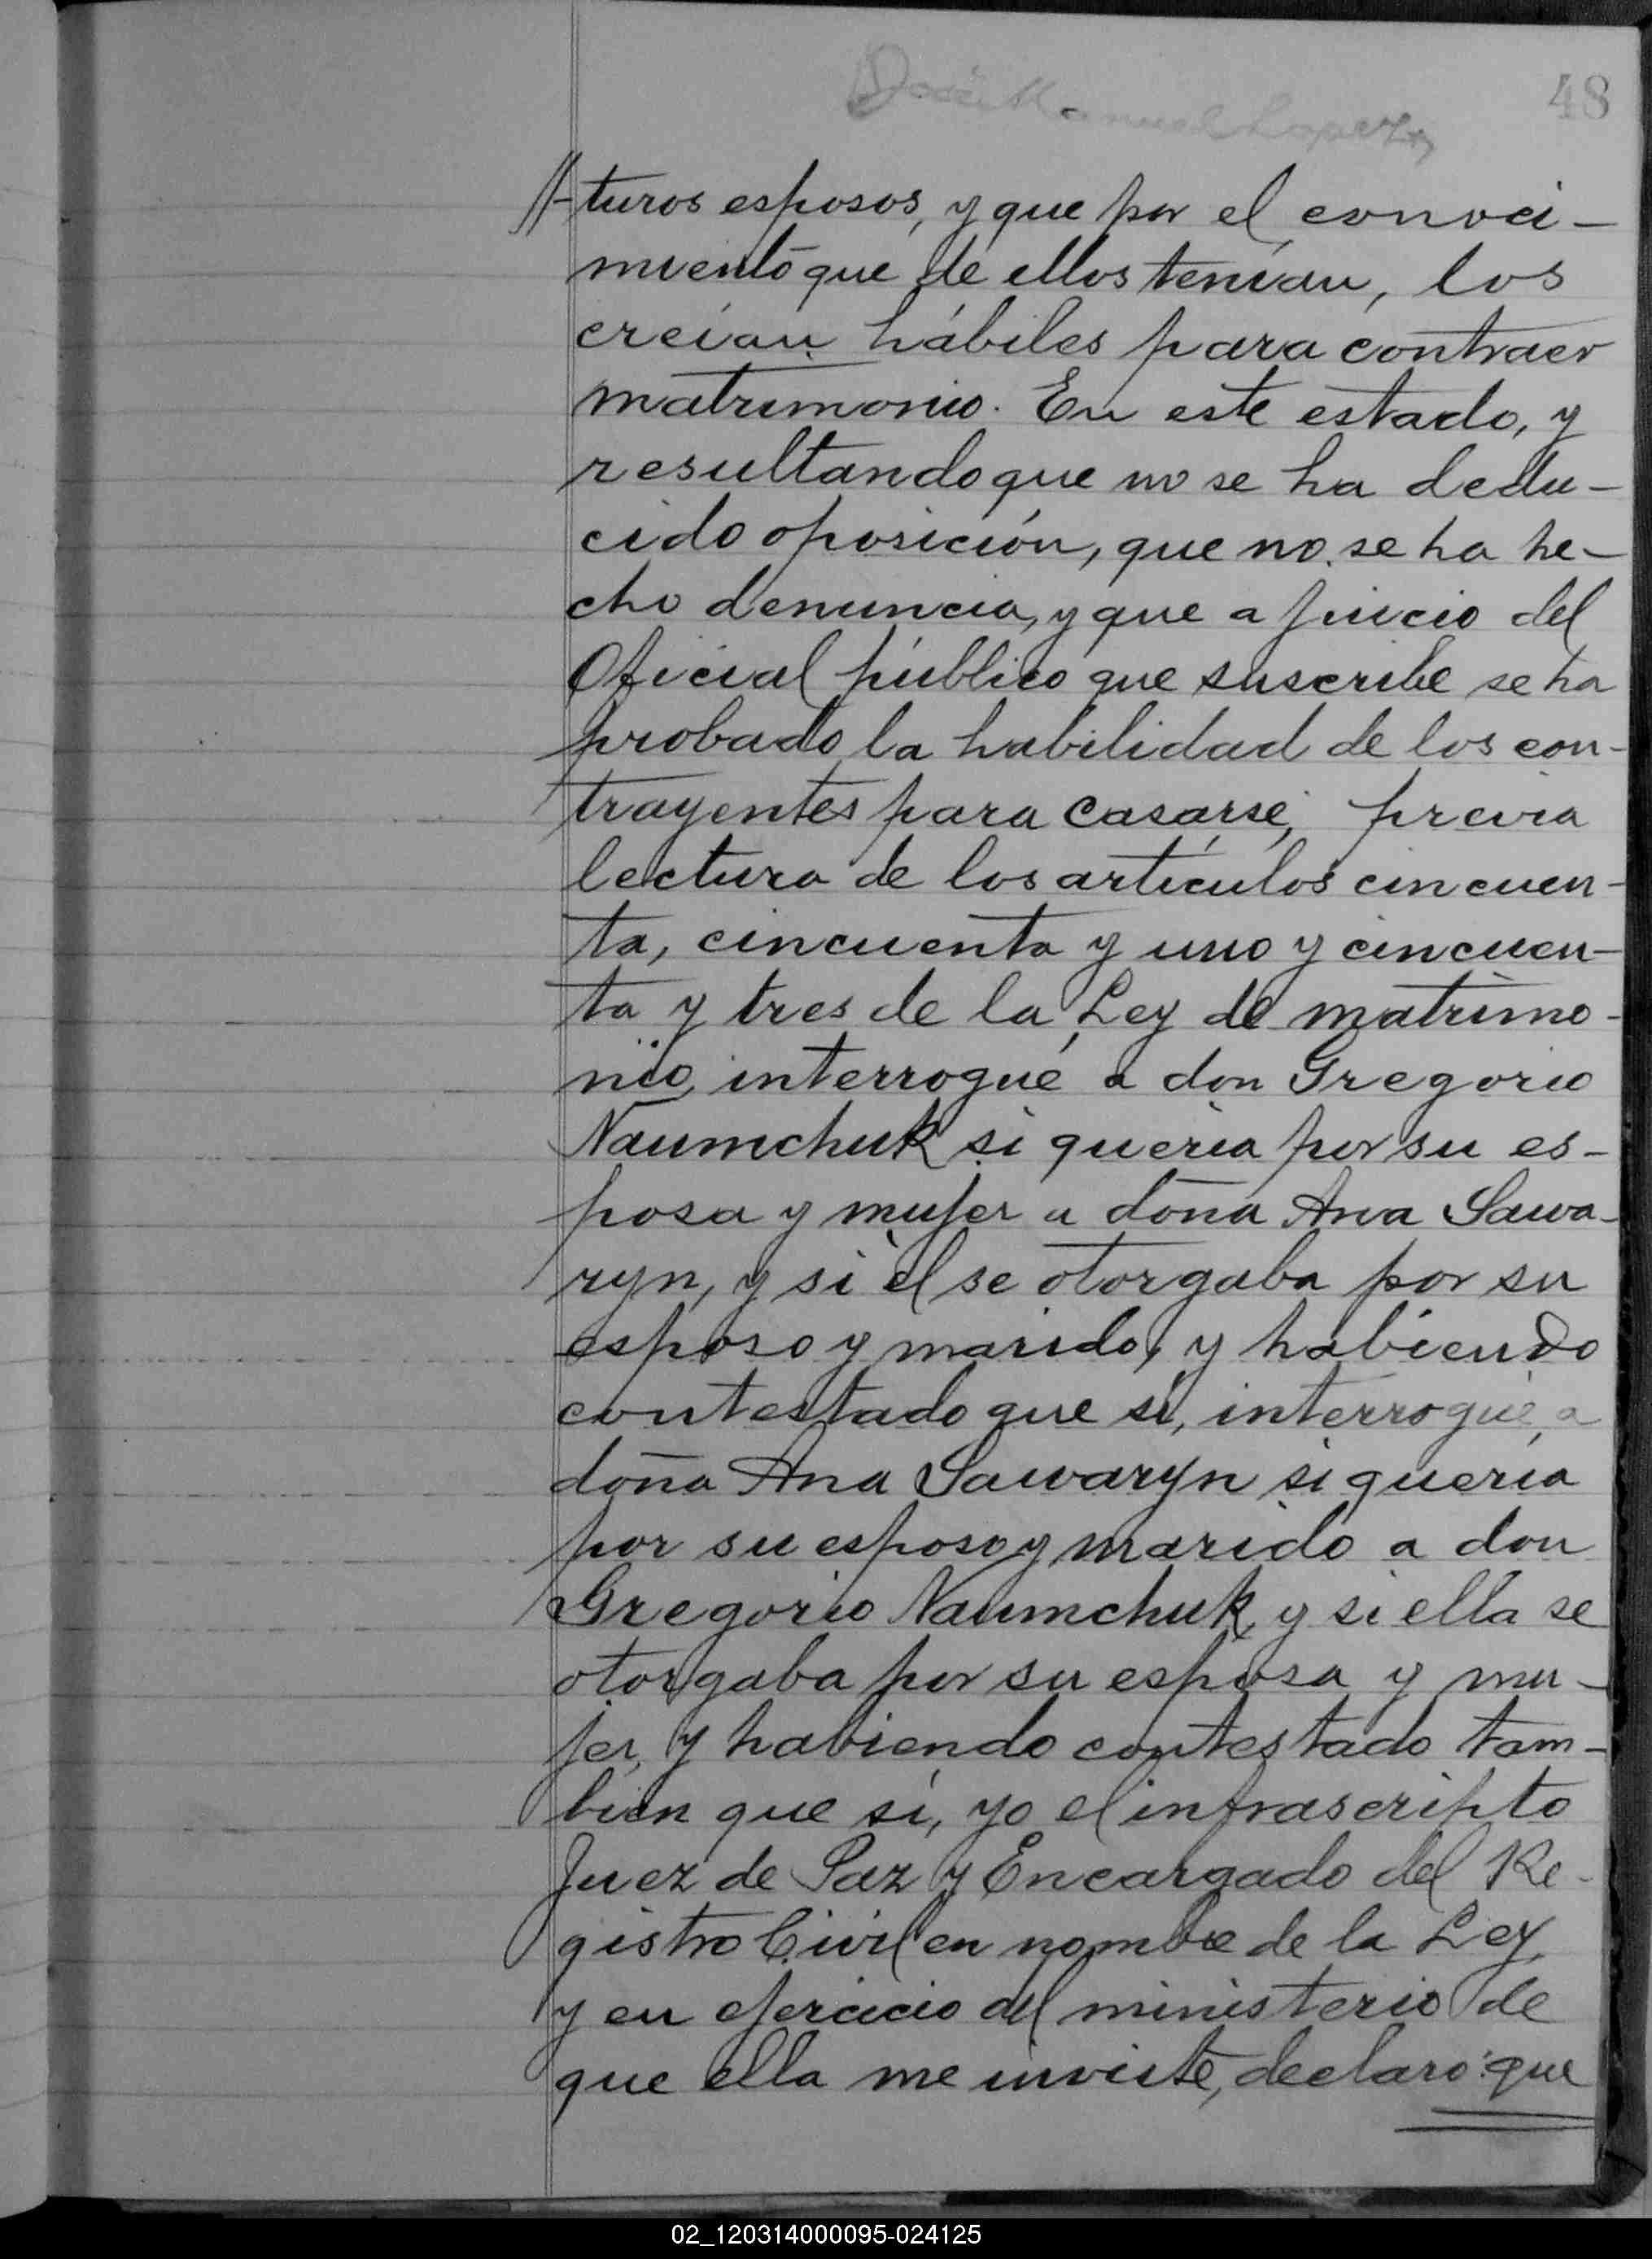 48
José Manuel Lopez
//-turos esposos, y que por el conoci-
miento que de ellos tenían, los
creían hábiles para contraer
matrimonio. En este estado, y
resultando que no se ha dedu-
cido oposición, que no se ha he-
cho denuncia, y que a juicio del
Oficial público que suscribe se ha
probado la habilidad de los con-
trayentes para casarse, previa
lectura de los artículos cincuen-
ta, cincuenta y uno y cincuen-
ta y tres de la Ley de matrimo-
nio, interrogué a don Gregorio
Naumchuk si quería por su es-
posa y mujer a doña Ana Sawa-
ryn, y si él se otorgaba por su
esposo y marido, y habiendo
contestado que sí, interrogué a
doña Ana Sawaryn si quería
por su esposo y marido a don
Gregorio Naumchuk, y si ella se
otorgaba por su esposa y mu-
jer, y habiendo contestado tam-
bien que sí, yo el infrascripto
Juez de Paz y Encargado del Re-
gistro Civil en nombre de la Ley,
y en ejercicio del ministerio de
que ella me inviste, declaro: que
02_120314000095-024125